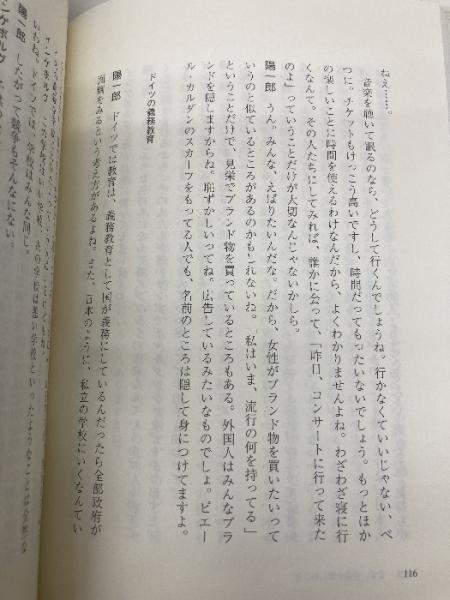 ねえ……。
音楽を聴いて眠るのなら、どうして行くんでしょうね。行かなくていいじゃない、べ
つに。チケットもけっこう高いですし、時間だってもったいないでしょう。もっとほか
の楽しいことに時間を使えるわけなんだから、よくわかりませんよね。わざわざ寝に行
くなんて。その人たちにしてみれば、誰かに会って、「昨日、コンサートに行って来た
のよ」っていうことだけが大切なんじゃないかしら。
陽一郎 うん。みんな、えばりたいんだな。だから、女性がブランド物を買いたいって
いうのと似ているところがあるのかもしれないね。「私はいま、流行の何を持ってる」
ということだけで、見栄でブランド物を買っているところもある。外国人はみんなブラ
ンドを隠しますからね。恥ずかしいってね。広告しているみたいなものでしょ。ピエー
ル・カルダンのスカーフをもってる人でも、名前のところは隠して身につけてますよ。
ドイツの義務教育
陽一郎 ドイツでは教育は、義務教育として国が義務にしているんだったら全部政府が
面倒をみるという考え方があるよね。また、日本のように、私立の学校にいくなんてい
いわね。ドイツでは、学校はみんな同じ、
陽一郎 したがって競争もそんなにない。
116